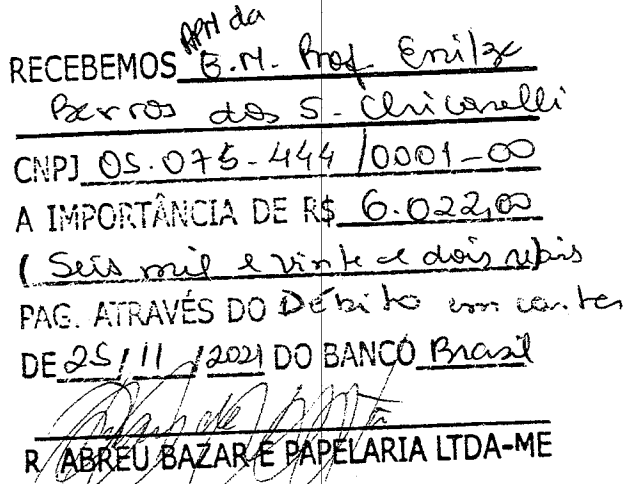 APM da
RECEBEMOS E.M. Prof Enilze
Barros dos S. Chicarelli
CNPJ 05.075.444/0001-00
A IMPORTÂNCIA DE R$ 6.022,00
( Seis mil e vinte e dois reais
PAG. ATRAVÉS DO Débito em conta
DE 25/11/2021 DO BANCO Brasil
R ABREU BAZAR E PAPELARIA LTDA-ME